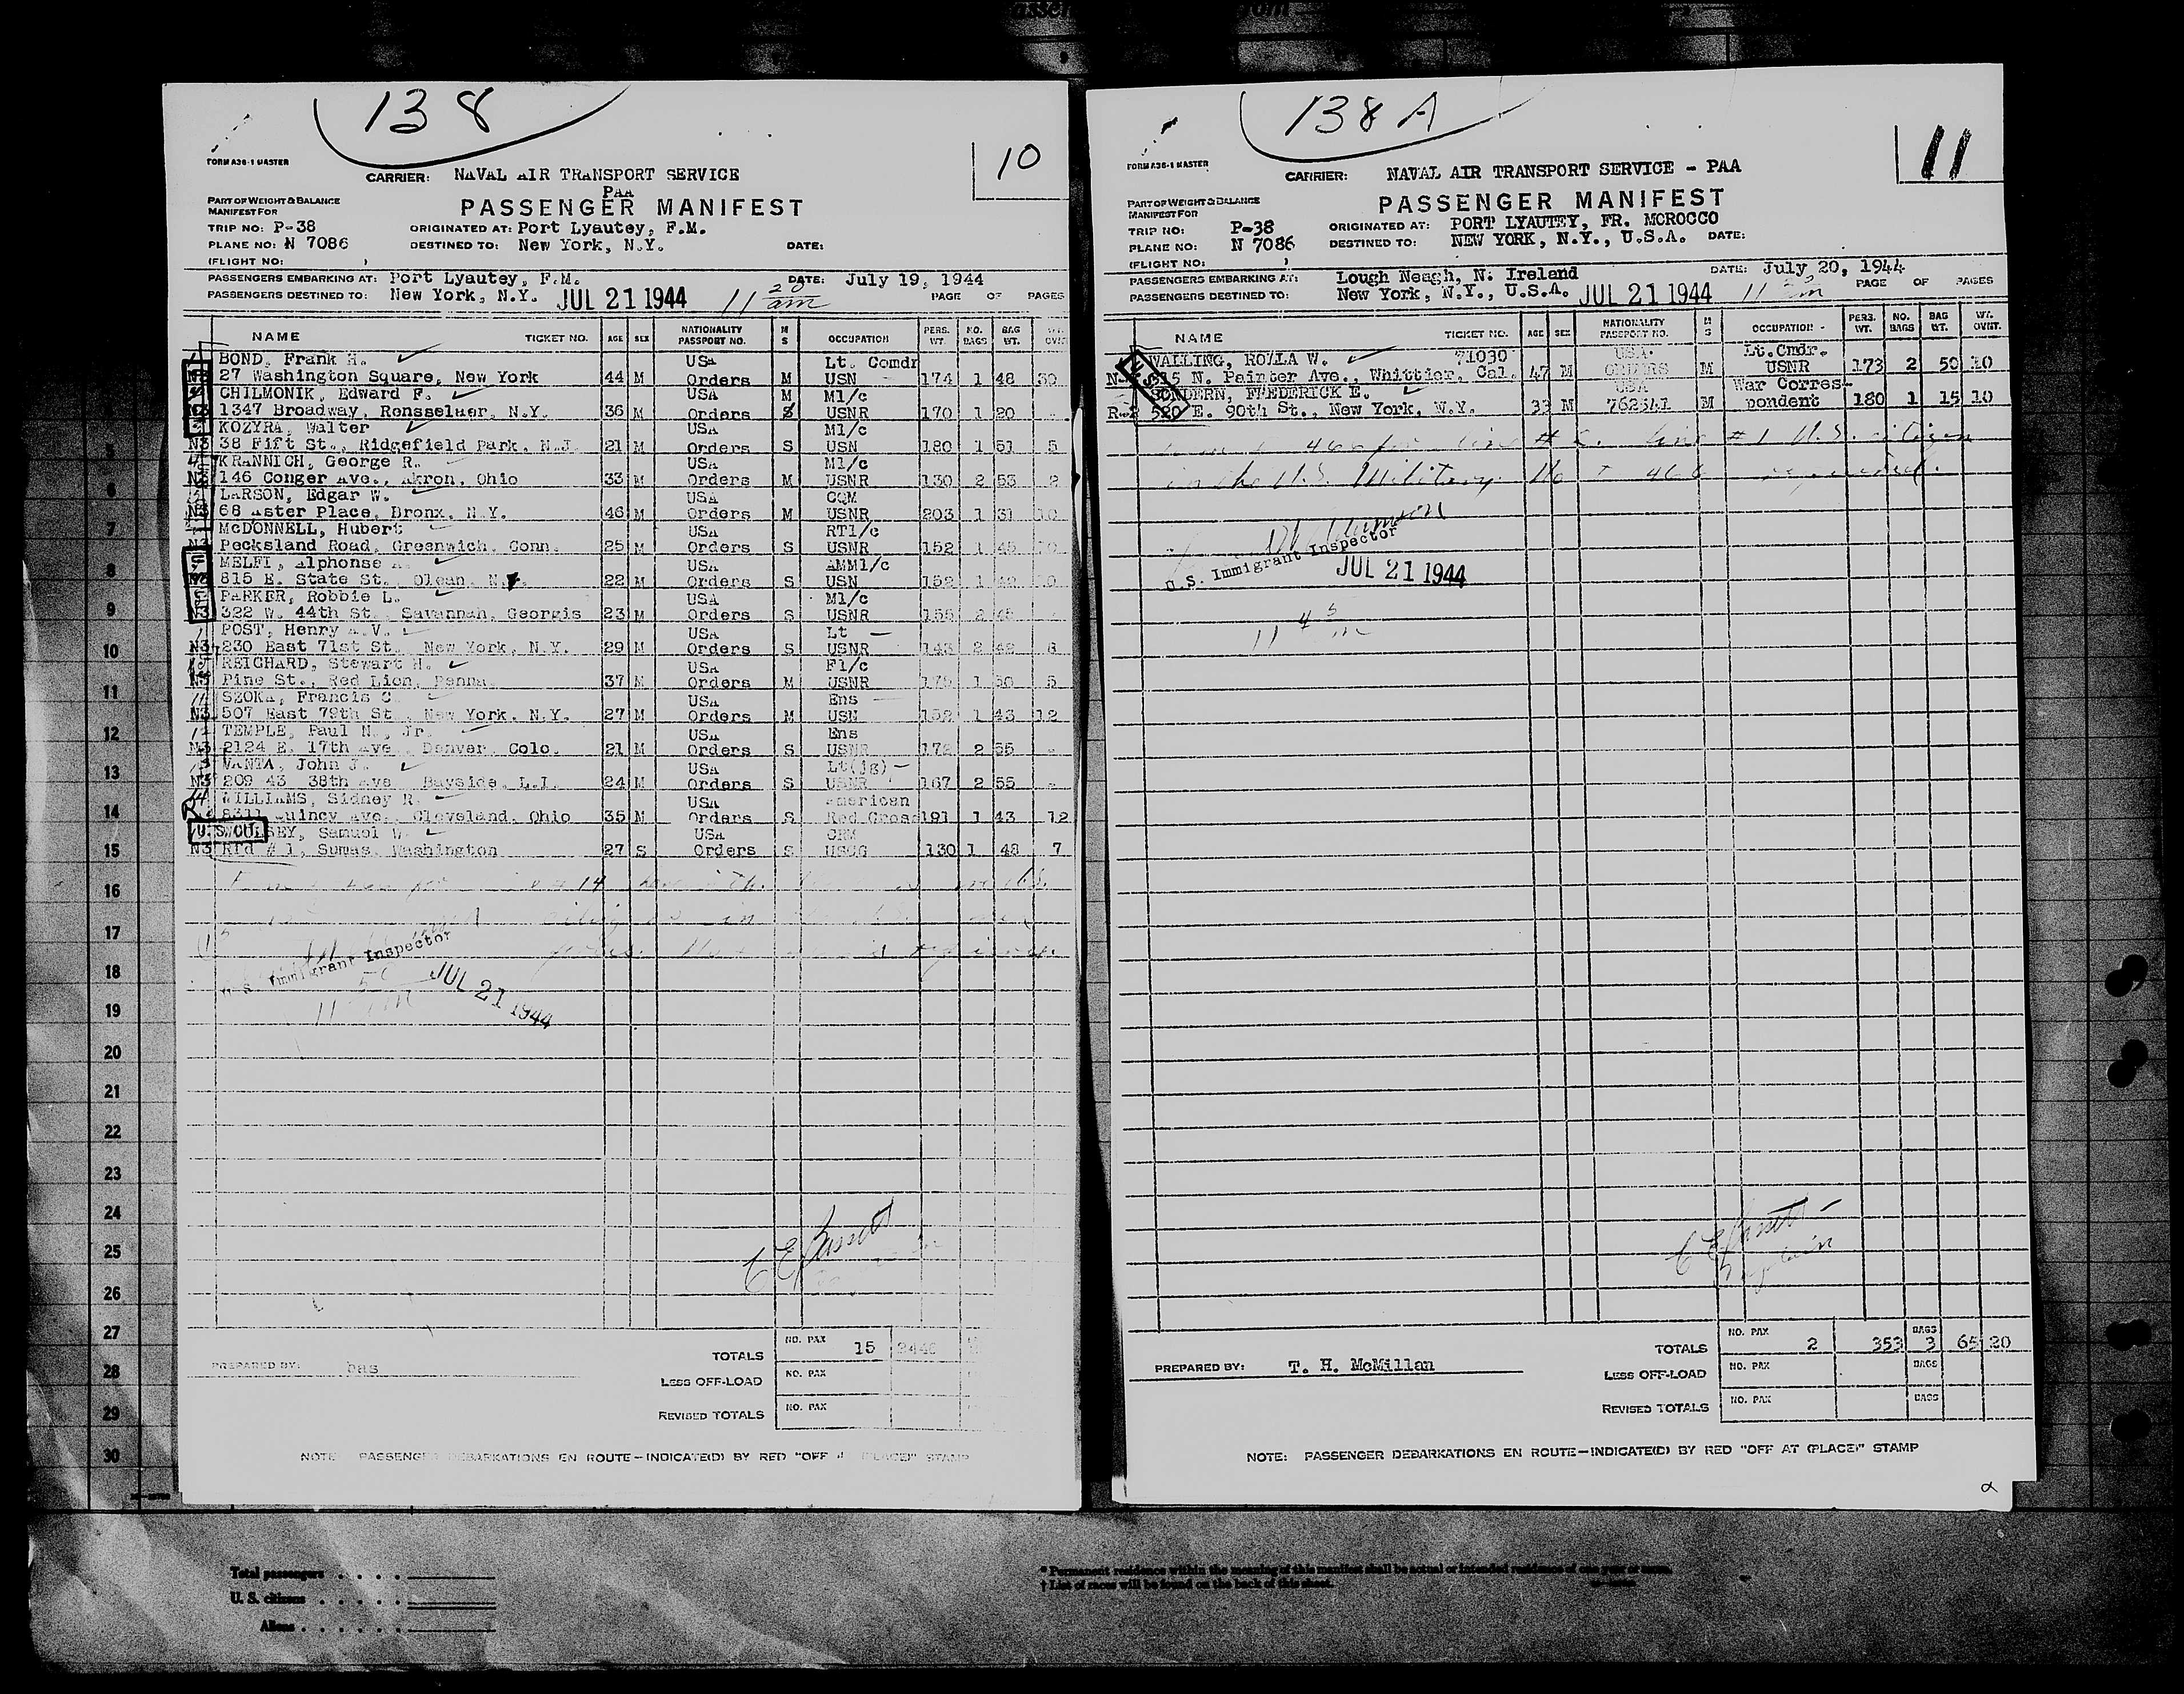 138
10
FORM A36-1 MASTER
CARRIER: NAVAL AIR TRANSPORT SERVICE
PAA
PART OF WEIGHT & BALANCE
MANIFEST FOR
PASSENGER MANIFEST
TRIP NO: P-38 ORIGINATED AT: Port Lyautey, F.M.
PLANE NO: N 7086 DESTINED TO: New York, N.Y. DATE:
(FLIGHT NO: )
PASSENGERS EMBARKING AT: Port Lyautey, F.M. DATE: July 19, 1944
PASSENGERS DESTINED TO: New York, N.Y. JUL 21 1944 11 20 am PAGE OF PAGES
NAME TICKET NO. AGE SEX NATIONALITY PASSPORT NO. M S OCCUPATION PERS. WT. NO. BAGS BAG WT.
BOND, Frank H. USA Lt. Comdr
N3 27 Washington Square, New York 44 M Orders M USN 174 1 48 30
CHILMONIK, Edward F. USA M M1/c
N3 1347 Broadway, Rensselaer, N.Y. 36 M Orders USNR 170 1 20
KOZYRA, Walter USA M1/c
N3 38 Fift St., Ridgefield Park, N.J. 21 M Orders S USN 180 1 51 5
KRANNICH, George R. USA M1/c
N3 146 Conger Ave., Akron, Ohio 33 M Orders M USNR 130 2 53 2
LARSON, Edgar W. USA CQM
N3 68 Aster Place, Bronx, N.Y. 46 M Orders M USNR 203 1 31 10
McDONNELL, Hubert USA RT1/c
N3 Pecksland Road, Greenwich, Conn. 25 M Orders S USNR 152 1 45
MELFI, Alphonse A. USA AMM1/c
815 E. State St., Olean, N.Y. 22 M Orders S USN 152 1
PARKER, Robbie L. USA M1/c
N3 322 W. 44th St., Savannah, Georgis 23 M Orders S USNR 155 2 45
POST, Henry A.V. USA Lt
N3 230 East 71st St., New York, N.Y. 29 M Orders S USNR 143 2 48 8
REICHARD, Stewart H. USA F1/c
N3 Pine St., Red Lion, Penna. 37 M Orders M USNR 175 1 30 5
11 SZOKA, Francis C. USA Ens
N3 507 East 79th St., New York, N.Y. 27 M Orders M USN 152 1 43 12
12 TEMPLE, Paul N., Jr. USA Ens
N3 2124 E. 17th Ave., Denver, Colo. 21 M Orders S USNR 172 2 55
13 VANTA, John J. USA Lt(jg)
N3 209 43 38th Ave. Bayside, L.I. 24 M Orders S USNR 167 2 55
14 WILLIAMS, Sidney R. USA American
8311 Quincy Ave., Cleveland, Ohio 35 M Orders S Red Cross 191 1 43 12
WOULSEY, Samuel W. USA CRM
N3 Rfd # 1, Sumas, Washington 27 S Orders S USCG 130 1 48 7
U. S. Immigrant Inspector
JUL 21 1944
11 50 am
C E
TOTALS NO. PAX 15
PREPARED BY: bas
LESS OFF-LOAD NO. PAX
REVISED TOTALS NO. PAX
NOTE: PASSENGER DEBARKATIONS EN ROUTE—INDICATE(D) BY RED "OFF AT (PLACE)" STAMP
138 A
11
FORM A36-1 MASTER
CARRIER: NAVAL AIR TRANSPORT SERVICE - PAA
PART OF WEIGHT & BALANCE
MANIFEST FOR
PASSENGER MANIFEST
TRIP NO: P-38 ORIGINATED AT: PORT LYAUTEY, FR. MOROCCO
PLANE NO: N 7086 DESTINED TO: NEW YORK, N.Y., U.S.A. DATE:
(FLIGHT NO: )
PASSENGERS EMBARKING AT: Lough Neagh, N. Ireland DATE: July 20, 1944
PASSENGERS DESTINED TO: New York, N.Y., U.S.A. JUL 21 1944 11 PAGE OF PAGES
NAME TICKET NO. AGE SEX NATIONALITY PASSPORT NO. M S OCCUPATION PERS. WT. NO. BAGS BAG WT. WT. OVWT.
WALLING, ROLLA W. 71030 USA Lt.Cmdr.
315 N. Painter Ave., Whittier, Cal. 47 M ORDERS M USNR 173 2 50 10
SONDERN, FREDERICK E. USA War Corres-
520 E. 90th St., New York, N.Y. 33 M 762541 M pondent 180 1 15 10
466 for line # 2. line # 1 U.S. citizen
in the U.S. Military. No 466 required.
U.S. Immigrant Inspector
JUL 21 1944
11 45 am
C E
Captain
TOTALS NO. PAX 2 353 BAGS 3 65 20
PREPARED BY: T. H. McMillan
LESS OFF-LOAD NO. PAX BAGS
REVISED TOTALS NO. PAX BAGS
NOTE: PASSENGER DEBARKATIONS EN ROUTE—INDICATE(D) BY RED "OFF AT (PLACE)" STAMP
5
6
7
8
9
10
11
12
13
14
15
16
17
18
19
20
21
22
23
24
25
26
27
28
29
30
Total passengers
U. S. citizens
Aliens
* Permanent residence within the meaning of this manifest shall be actual or intended residence of one year or more.
† List of races will be found on the back of this sheet.